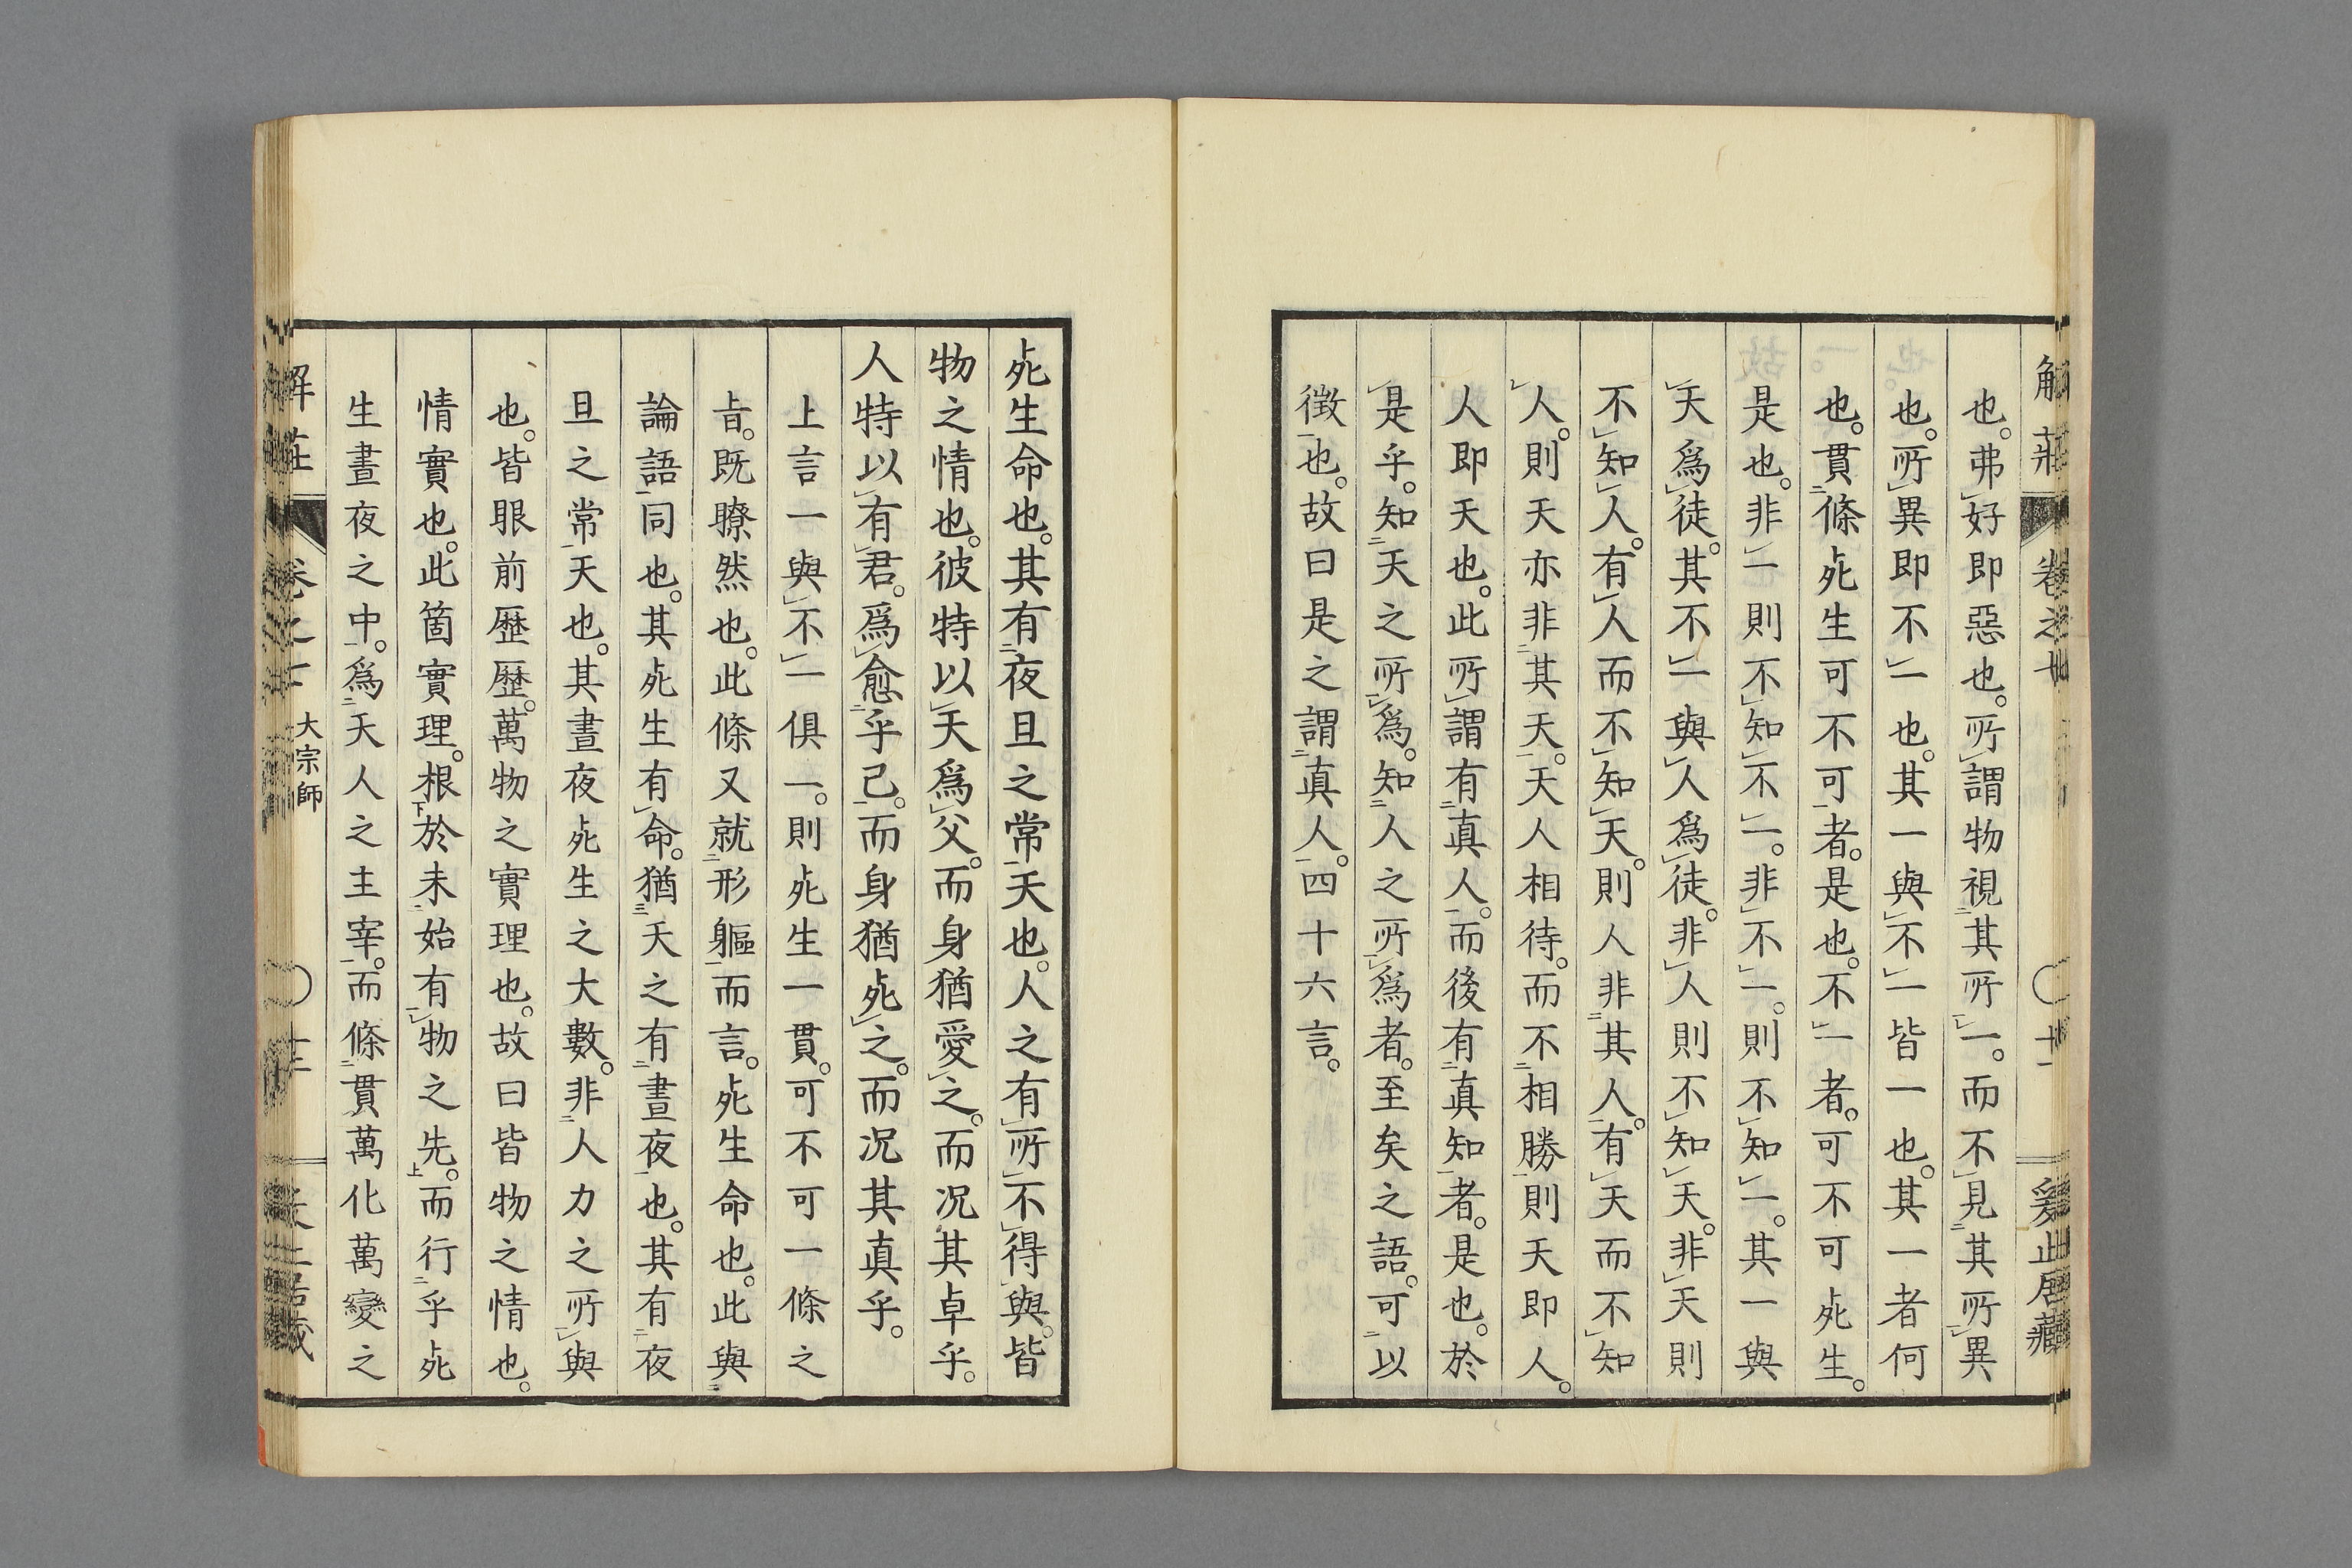 解莊
也。弗好即惡也。所謂物視其所一。而不見其所異
也。所異即不一也。其一與不一皆一也。其一者何
也。貫條死生可不可者。是也。不一者。可不可死生。
是也。非一則不知不一。非不一。則不知一。其一與
天爲徒。其不一與人爲徒。非人則不知天。非天則
不知人。有人而不知天。則人非其人。有天而不知
人。則天亦非其天。天人相待。而不相勝。則天即人。
人即天也。此所謂有真人。而後有真知者。是也。於
是乎。知天之所爲。知人之所爲者。至矣之語。可以
徴也。故曰是之謂真人。四十六言。
死生命也。其有夜旦之常。天也。人之有所不得與。皆
物之情也。彼特以天爲父。而身猶愛之。而况其卓乎。
人特以有君。爲愈乎己。而身猶死之。而况其真乎。
上言一與不一俱一。則死生一貫。可不可一條之
旨。既瞭然也。此條又就形軀而言。死生命也。此與
論語同也。其死生有命。猶天之有晝夜也。其有夜
旦之常。天也。其晝夜死生之大數。非人力之所與
也。皆眼前歷歷。萬物之實理也。故曰皆物之情也。
情實也。此箇實理。根於未始有物之先。而行乎死
生晝夜之中。爲天人之主宰。而條貫萬化萬變之
大宗師